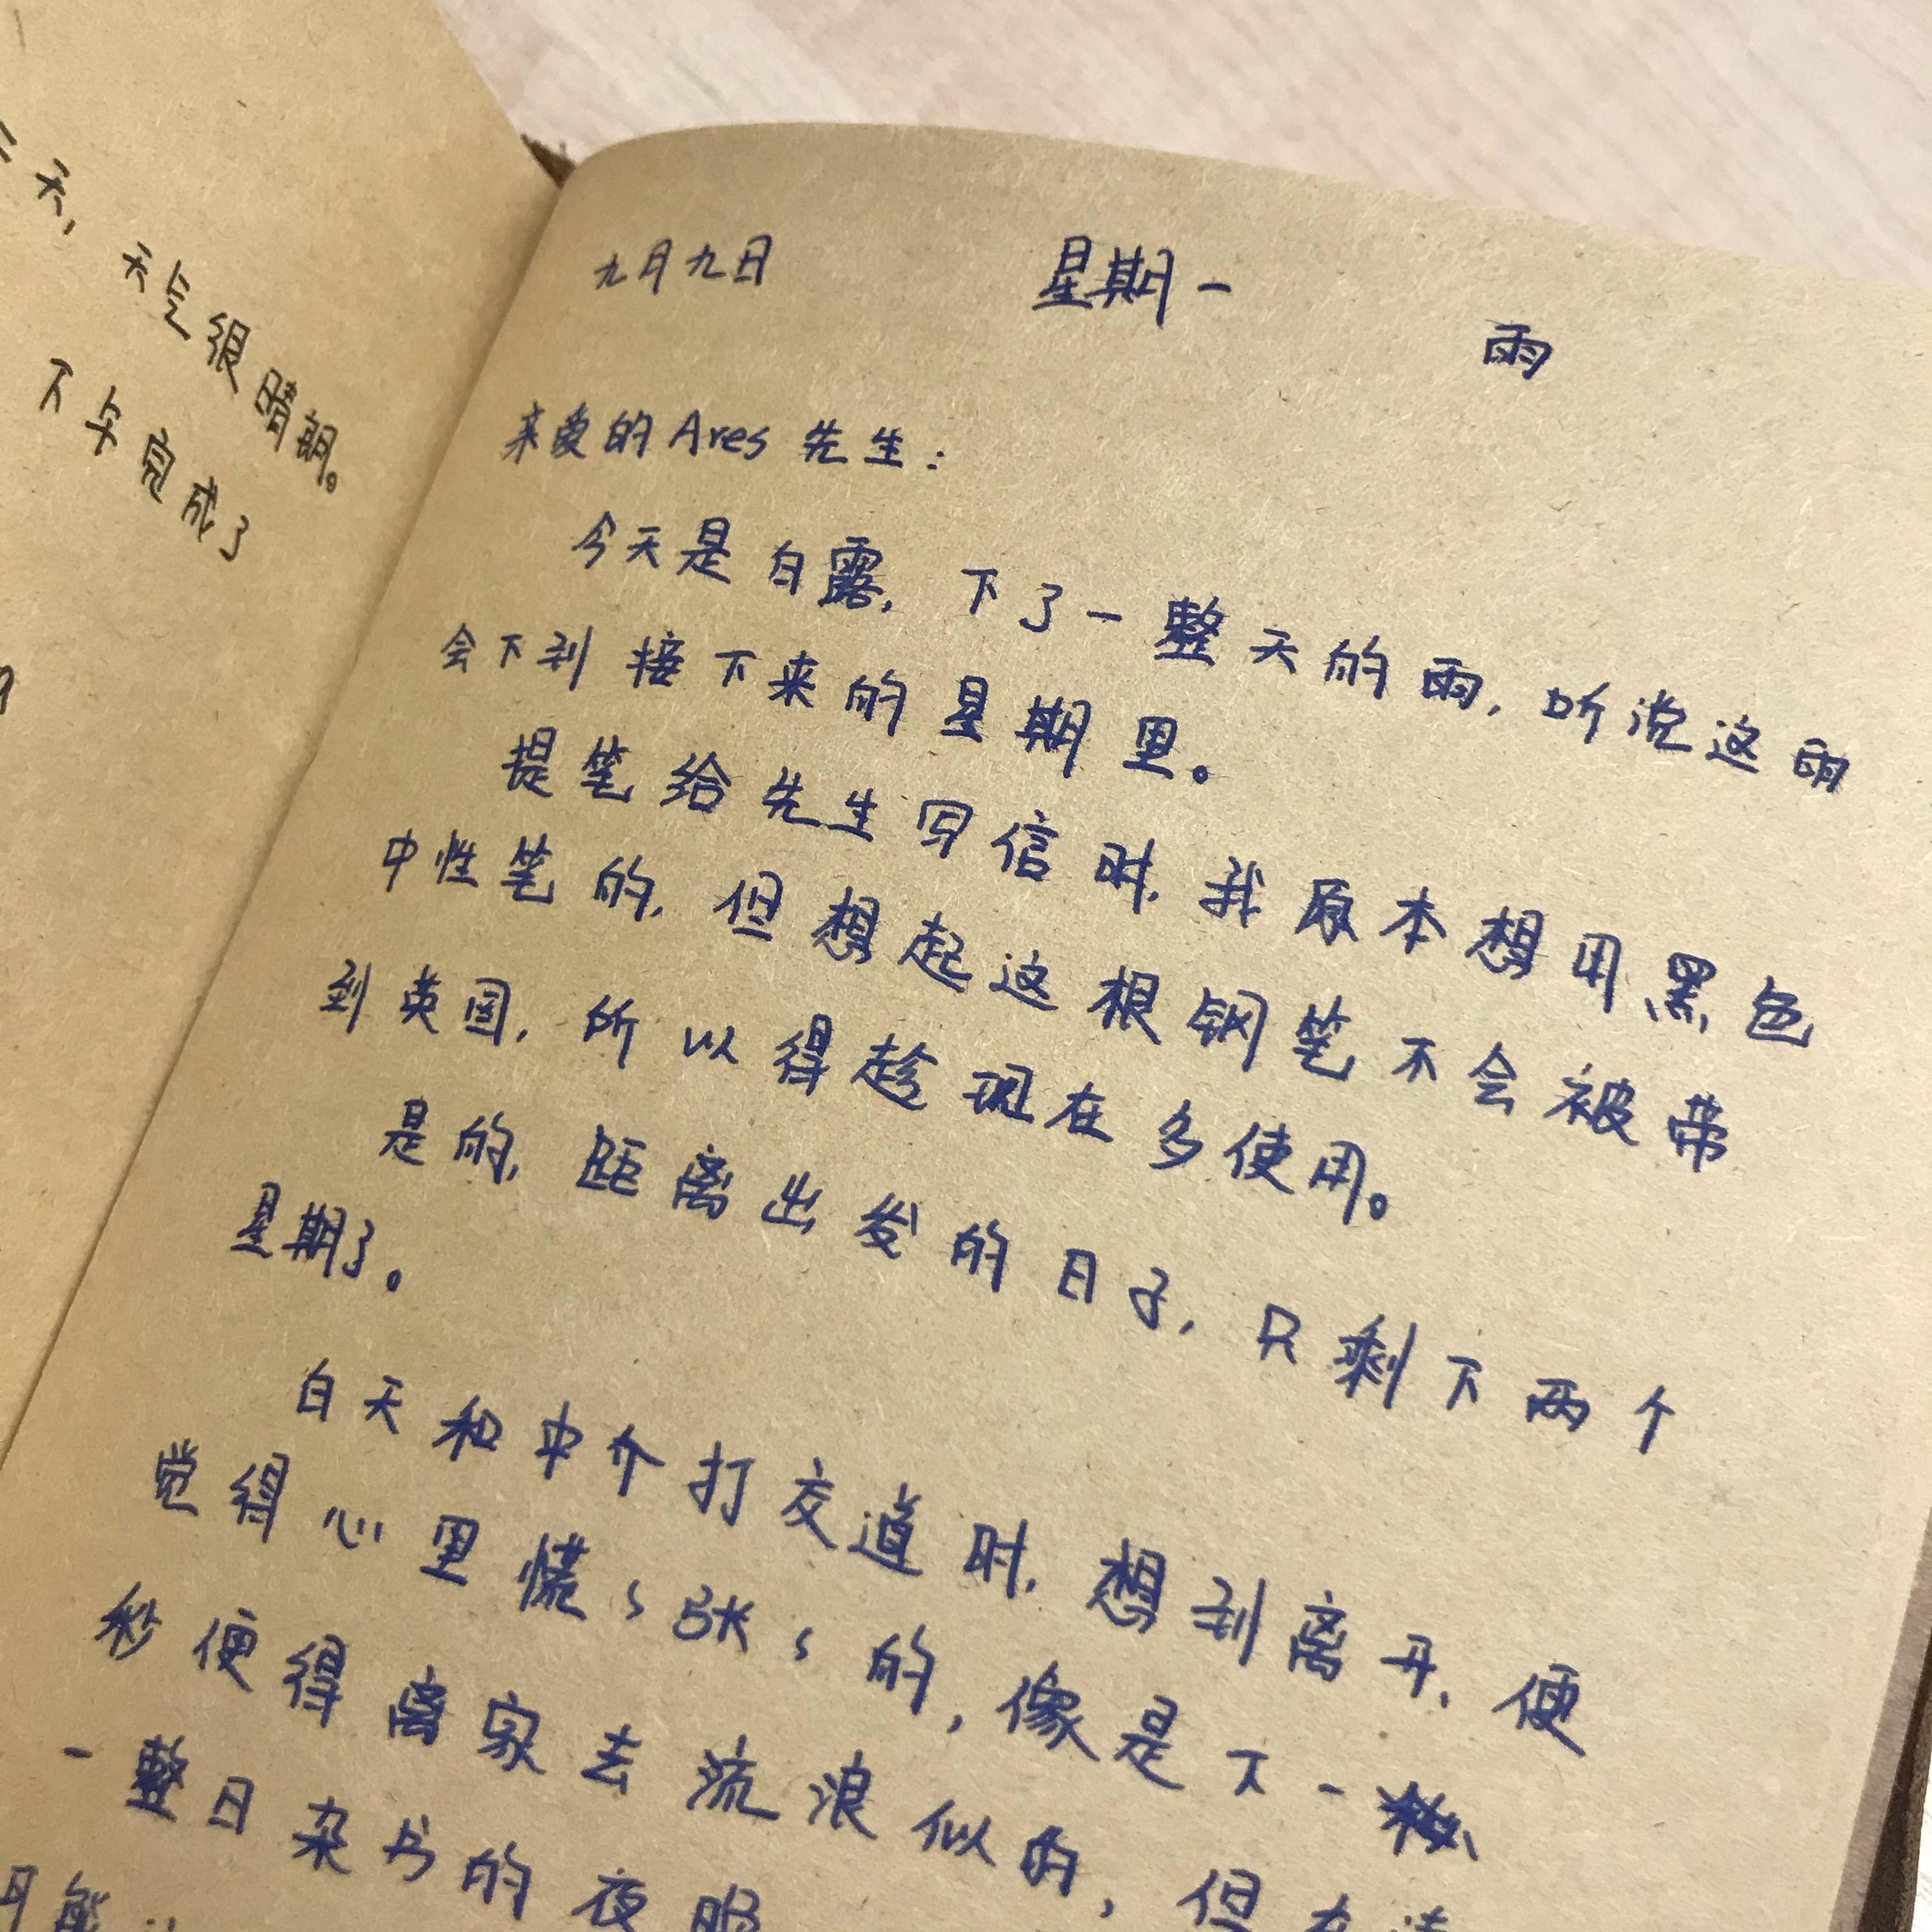 二天，天气很晴朗。
下午完成了
九月九日 星期一 雨
亲爱的Ares先生：
今天是白露，下了一整天的雨，听说这雨
会下到接下来的星期里。
提笔给先生写信时，我原本想用黑色
中性笔的，但想起这根钢笔不会被带
到英国，所以得趁现在多使用。
是的，距离出发的日子，只剩下两个
星期了。
白天和中介打交道时，想到离开，便
觉得心里慌慌张张的，像是下一
秒便得离家去流浪似的，但在
一整日杂书的夜晚
可能